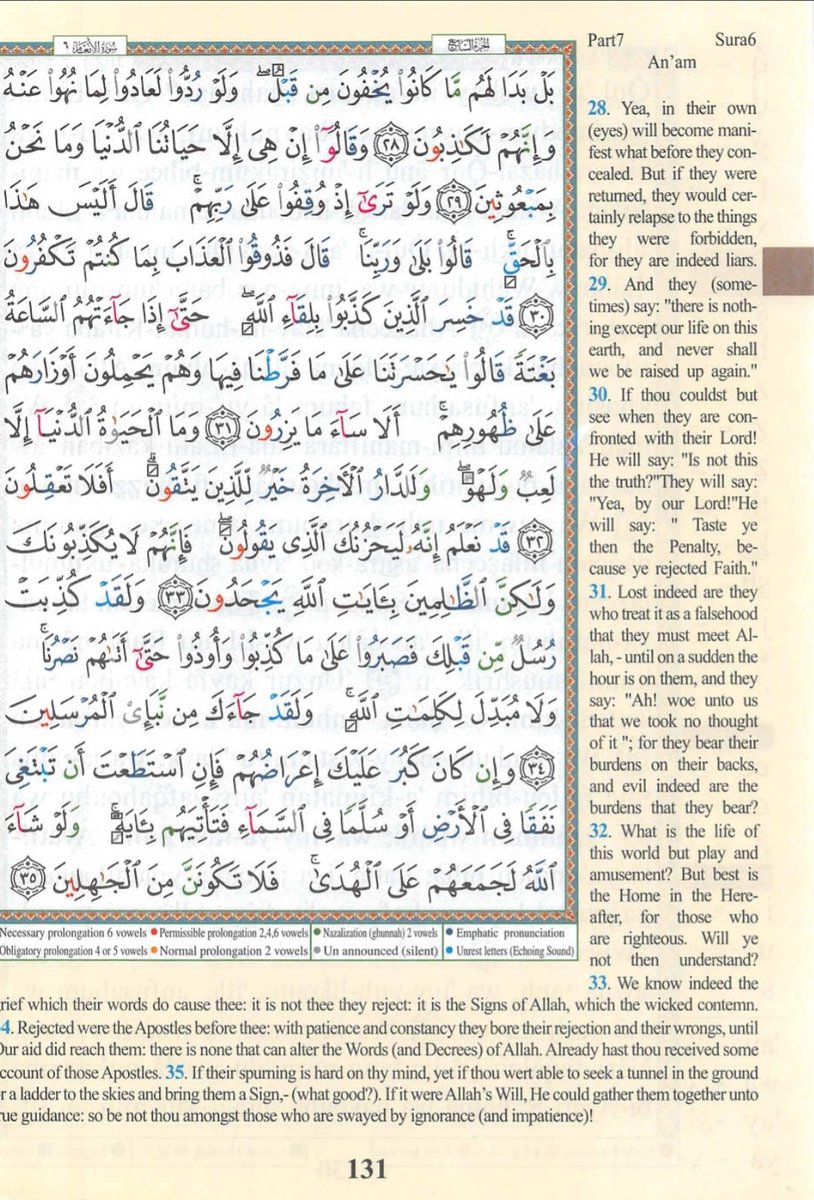 سورة الأنعام ٦
الجزء السابع
Part7 Sura6
An'am
بَلْ بَدَا لَهُم مَّا كَانُوا۟ يُخْفُونَ مِن قَبْلُ ۖ وَلَوْ رُدُّوا۟ لَعَادُوا۟ لِمَا نُهُوا۟ عَنْهُ
وَإِنَّهُمْ لَكَـٰذِبُونَ ٢٨ وَقَالُوٓا۟ إِنْ هِىَ إِلَّا حَيَاتُنَا الدُّنْيَا وَمَا نَحْنُ
بِمَبْعُوثِينَ ٢٩ وَلَوْ تَرَىٰٓ إِذْ وُقِفُوا۟ عَلَىٰ رَبِّهِمْ ۚ قَالَ أَلَيْسَ هَـٰذَا
بِالْحَقِّ ۚ قَالُوا۟ بَلَىٰ وَرَبِّنَا ۚ قَالَ فَذُوقُوا۟ الْعَذَابَ بِمَا كُنتُمْ تَكْفُرُونَ
٣٠ قَدْ خَسِرَ الَّذِينَ كَذَّبُوا۟ بِلِقَآءِ اللَّهِ ۖ حَتَّىٰٓ إِذَا جَآءَتْهُمُ السَّاعَةُ
بَغْتَةً قَالُوا۟ يَـٰحَسْرَتَنَا عَلَىٰ مَا فَرَّطْنَا فِيهَا وَهُمْ يَحْمِلُونَ أَوْزَارَهُمْ
عَلَىٰ ظُهُورِهِمْ ۚ أَلَا سَآءَ مَا يَزِرُونَ ٣١ وَمَا الْحَيَوٰةُ الدُّنْيَآ إِلَّا
لَعِبٌ وَلَهْوٌ ۖ وَلَلدَّارُ الْـَٔاخِرَةُ خَيْرٌ لِّلَّذِينَ يَتَّقُونَ ۗ أَفَلَا تَعْقِلُونَ
٣٢ قَدْ نَعْلَمُ إِنَّهُۥ لَيَحْزُنُكَ الَّذِى يَقُولُونَ ۖ فَإِنَّهُمْ لَا يُكَذِّبُونَكَ
وَلَـٰكِنَّ الظَّـٰلِمِينَ بِـَٔايَـٰتِ اللَّهِ يَجْحَدُونَ ٣٣ وَلَقَدْ كُذِّبَتْ
رُسُلٌ مِّن قَبْلِكَ فَصَبَرُوا۟ عَلَىٰ مَا كُذِّبُوا۟ وَأُوذُوا۟ حَتَّىٰٓ أَتَىٰهُمْ نَصْرُنَا ۚ
وَلَا مُبَدِّلَ لِكَلِمَـٰتِ اللَّهِ ۚ وَلَقَدْ جَآءَكَ مِن نَّبَإِى۟ الْمُرْسَلِينَ
٣٤ وَإِن كَانَ كَبُرَ عَلَيْكَ إِعْرَاضُهُمْ فَإِنِ اسْتَطَعْتَ أَن تَبْتَغِىَ
نَفَقًا فِى الْأَرْضِ أَوْ سُلَّمًا فِى السَّمَآءِ فَتَأْتِيَهُم بِـَٔايَةٍ ۚ وَلَوْ شَآءَ
اللَّهُ لَجَمَعَهُمْ عَلَى الْهُدَىٰ ۚ فَلَا تَكُونَنَّ مِنَ الْجَـٰهِلِينَ ٣٥
28. Yea, in their own
(eyes) will become mani-
fest what before they con-
cealed. But if they were
returned, they would cer-
tainly relapse to the things
they were forbidden,
for they are indeed liars.
29. And they (some-
times) say: "there is noth-
ing except our life on this
earth, and never shall
we be raised up again."
30. If thou couldst but
see when they are con-
fronted with their Lord!
He will say: "Is not this
the truth?"They will say:
"Yea, by our Lord!"He
will say: " Taste ye
then the Penalty, be-
cause ye rejected Faith."
31. Lost indeed are they
who treat it as a falsehood
that they must meet Al-
lah, - until on a sudden the
hour is on them, and they
say: "Ah! woe unto us
that we took no thought
of it "; for they bear their
burdens on their backs,
and evil indeed are the
burdens that they bear?
32. What is the life of
this world but play and
amusement? But best is
the Home in the Here-
after, for those who
are righteous. Will ye
not then understand?
33. We know indeed the
Necessary prolongation 6 vowels • Permissible prolongation 2,4,6 vowels • Nazalization (ghunnah) 2 vowels • Emphatic pronunciation
Obligatory prolongation 4 or 5 vowels • Normal prolongation 2 vowels • Un announced (silent) • Unrest letters (Echoing Sound)
grief which their words do cause thee: it is not thee they reject: it is the Signs of Allah, which the wicked contemn.
34. Rejected were the Apostles before thee: with patience and constancy they bore their rejection and their wrongs, until
Our aid did reach them: there is none that can alter the Words (and Decrees) of Allah. Already hast thou received some
account of those Apostles. 35. If their spurning is hard on thy mind, yet if thou wert able to seek a tunnel in the ground
or a ladder to the skies and bring them a Sign,- (what good?). If it were Allah's Will, He could gather them together unto
true guidance: so be not thou amongst those who are swayed by ignorance (and impatience)!
131